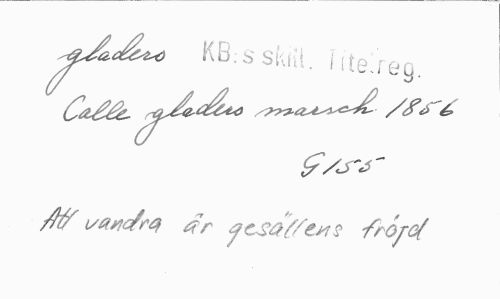 gladero KB:s skill. Titelreg.
Calle gladeros marsch 1856
G 155
Att vandra är gesällens fröjd